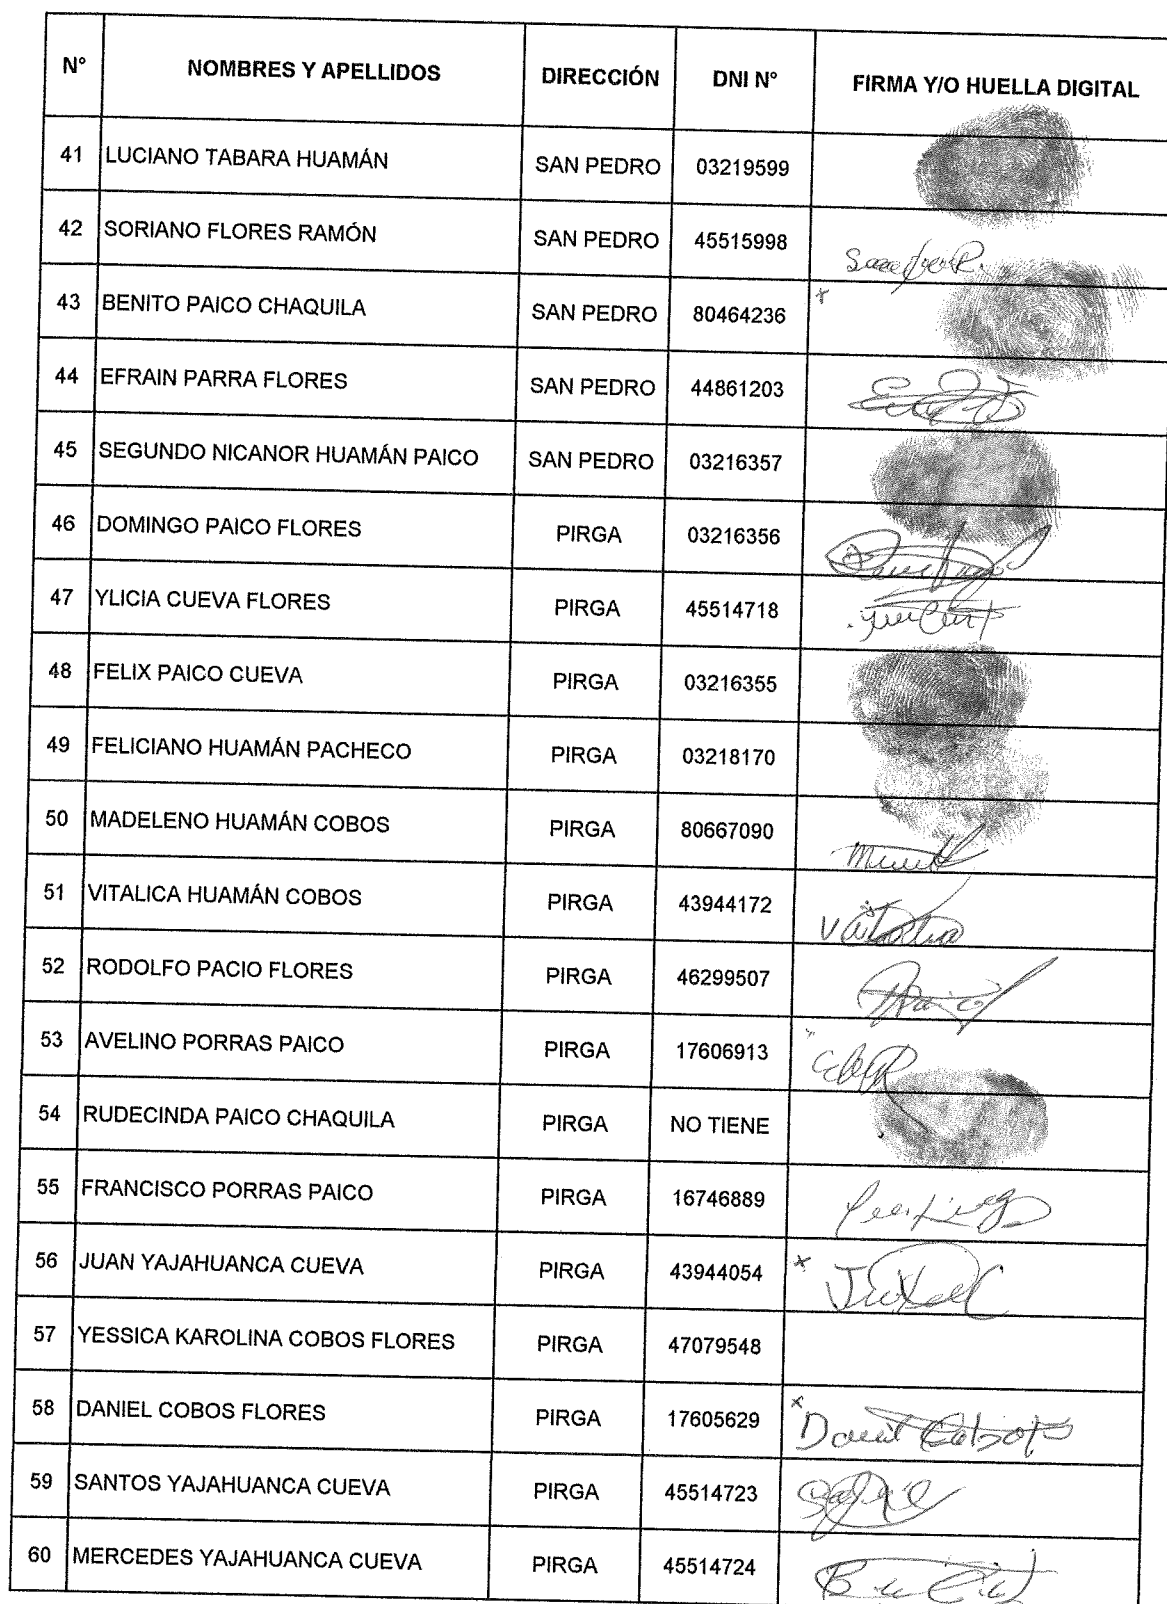 N° NOMBRES Y APELLIDOS DIRECCIÓN DNI N° FIRMA Y/O HUELLA DIGITAL
41 LUCIANO TABARA HUAMÁN SAN PEDRO 03219599
42 SORIANO FLORES RAMÓN SAN PEDRO 45515998
43 BENITO PAICO CHAQUILA SAN PEDRO 80464236
44 EFRAIN PARRA FLORES SAN PEDRO 44861203
45 SEGUNDO NICANOR HUAMÁN PAICO SAN PEDRO 03216357
46 DOMINGO PAICO FLORES PIRGA 03216356
47 YLICIA CUEVA FLORES PIRGA 45514718
48 FELIX PAICO CUEVA PIRGA 03216355
49 FELICIANO HUAMÁN PACHECO PIRGA 03218170
50 MADELENO HUAMÁN COBOS PIRGA 80667090
51 VITALICA HUAMÁN COBOS PIRGA 43944172
52 RODOLFO PACIO FLORES PIRGA 46299507
53 AVELINO PORRAS PAICO PIRGA 17606913
54 RUDECINDA PAICO CHAQUILA PIRGA NO TIENE
55 FRANCISCO PORRAS PAICO PIRGA 16746889
56 JUAN YAJAHUANCA CUEVA PIRGA 43944054
57 YESSICA KAROLINA COBOS FLORES PIRGA 47079548
58 DANIEL COBOS FLORES PIRGA 17605629
59 SANTOS YAJAHUANCA CUEVA PIRGA 45514723
60 MERCEDES YAJAHUANCA CUEVA PIRGA 45514724